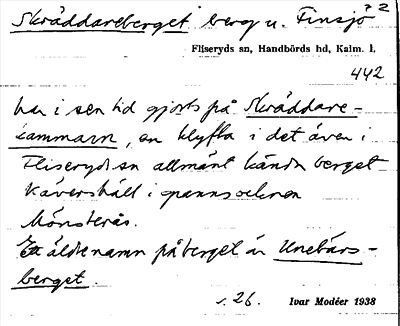 Skräddareberget berg u. Finsjö 72
Fliseryds sn, Handbörds hd, Kalm. l.
442
har i sen tid gjorts på Skräddare-
kammarn, en klyfta i det även i
Fliseryds sn allmänt kända berget
Kävershäll i grannsocknen
Mönsterås.
Ett äldre namn på berget är Unebärs-
berget.
s. 26. Ivar Modéer 1938